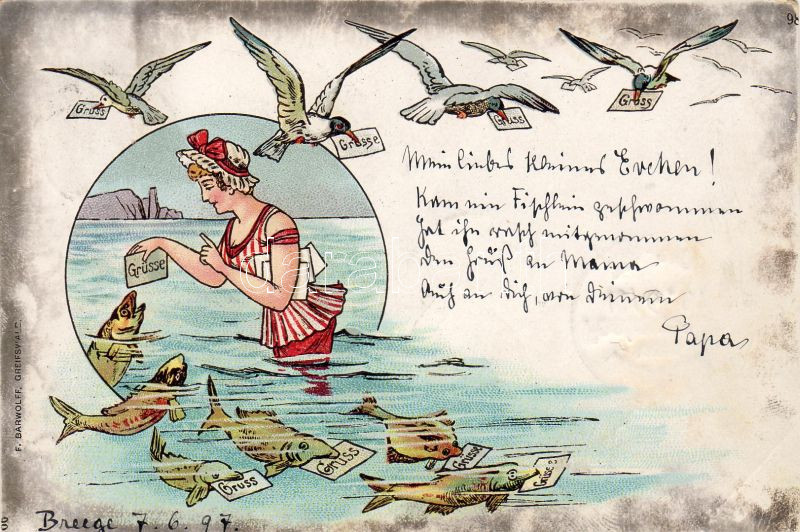 98
Gruss
Grüsse
Gruss
Gruss
Mein liebes kleines Evchen!
Kam ein Fischlein geschwommen
Hat ihn rasch mitgenommen
Den Gruß an Mama
Auch an dich, von Deinem
Papa
Grüsse
F. BARWOLFF, GREIFSWALD.
Gruss
Gruss
Grüsse
Grüsse
Breege 7.6.97.